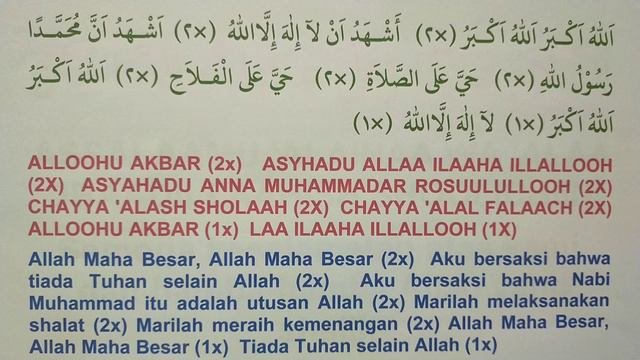 اَللّٰهُ اَكْبَرُ اَللّٰهُ اَكْبَرُ (٢x) أَشْهَدُ اَنْ لآ إِلٰهَ إِلَّااللّٰهُ (٢x) اَشْهَدُ اَنَّ مُحَمَّدًا
رَسُوْلُ اللّٰهِ (٢x) حَيَّ عَلَى الصَّلاَةِ (٢x) حَيَّ عَلَى الْفَلاَحِ (٢x) اَللّٰهُ اَكْبَرُ
اَللّٰهُ اَكْبَرُ (١x) لآ إِلٰهَ إِلَّااللّٰهُ (١x)
ALLOOHU AKBAR (2x) ASYHADU ALLAA ILAAHA ILLALLOOH
(2X) ASYAHADU ANNA MUHAMMADAR ROSUULULLOOH (2X)
CHAYYA 'ALASH SHOLAAH (2X) CHAYYA 'ALAL FALAACH (2X)
ALLOOHU AKBAR (1x) LAA ILAAHA ILLALLOOH (1X)
Allah Maha Besar, Allah Maha Besar (2x) Aku bersaksi bahwa
tiada Tuhan selain Allah (2x) Aku bersaksi bahwa Nabi
Muhammad itu adalah utusan Allah (2x) Marilah melaksanakan
shalat (2x) Marilah meraih kemenangan (2x) Allah Maha Besar,
Allah Maha Besar (1x) Tiada Tuhan selain Allah (1x)